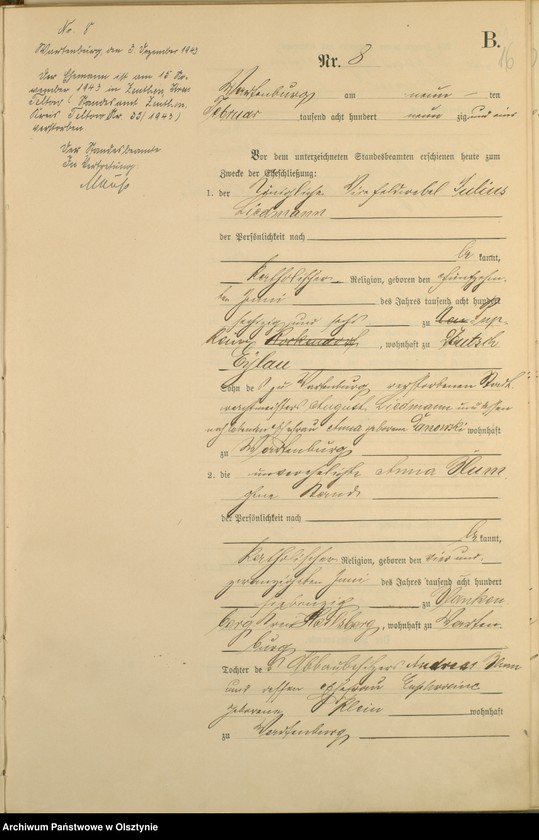 No 8
Wartenburg, den 3. Dezember 1943
Der Ehemann ist am 15 No-
vember 1943 in Zeuthen, Kreis
Teltow (Standesamt Zeuthen
Kreis Teltow Nr. 33/1943)
verstorben.
Der Standesbeamte
In Vertretung
B.
16
Nr. 8
Wartenburg am neun ten
Februar tausend acht hundert neunzig und eins
Vor dem unterzeichneten Standesbeamten erschienen heute zum
Zwecke der Eheschließung:
1. der Königliche Vizefeldwebel Julius
Liedmann
der Persönlichkeit nach
be kannt,
katholischer Religion, geboren den fünfzehn-
ten Juni des Jahres tausend acht hundert
sechzig und sechs zu
, wohnhaft zu Deutsch
Eylau
Sohn des zu Wartenburg verstorbenen Stadt-
wachtmeisters August Liedmann und dessen
Ehefrau Anna geborene wohnhaft
zu Wartenburg
2. die unverehelichte Anna
ohne Stand
der Persönlichkeit nach
be kannt,
katholischer Religion, geboren den vier und
zwanzigsten Juni des Jahres tausend acht hundert
siebenzig zu Blanken-
berg Kreis Heilsberg, wohnhaft zu Warten-
burg
Tochter des Abbaubesitzers Andreas
und dessen Ehefrau Euphrosine
geborene Klein wohnhaft
zu Wartenburg
Archiwum Państwowe w Olsztynie